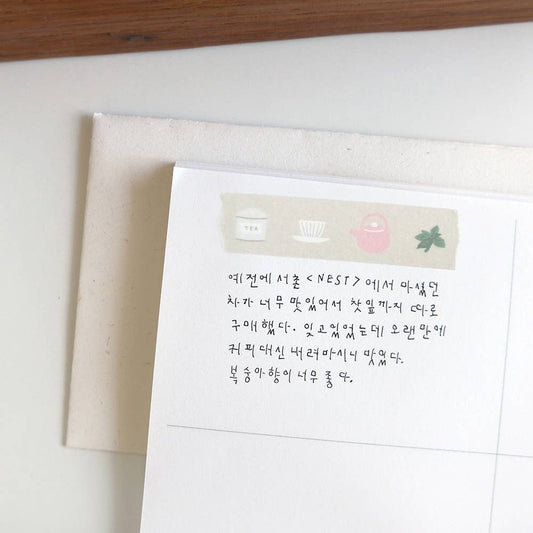 TEA
예전에 서촌 <NEST> 에서 마셨던
차가 너무 맛있어서 찻잎까지 따로
구매했다. 잊고있었는데 오랜만에
커피대신 내려마시니 맛있다.
복숭아향이 너무 좋다.